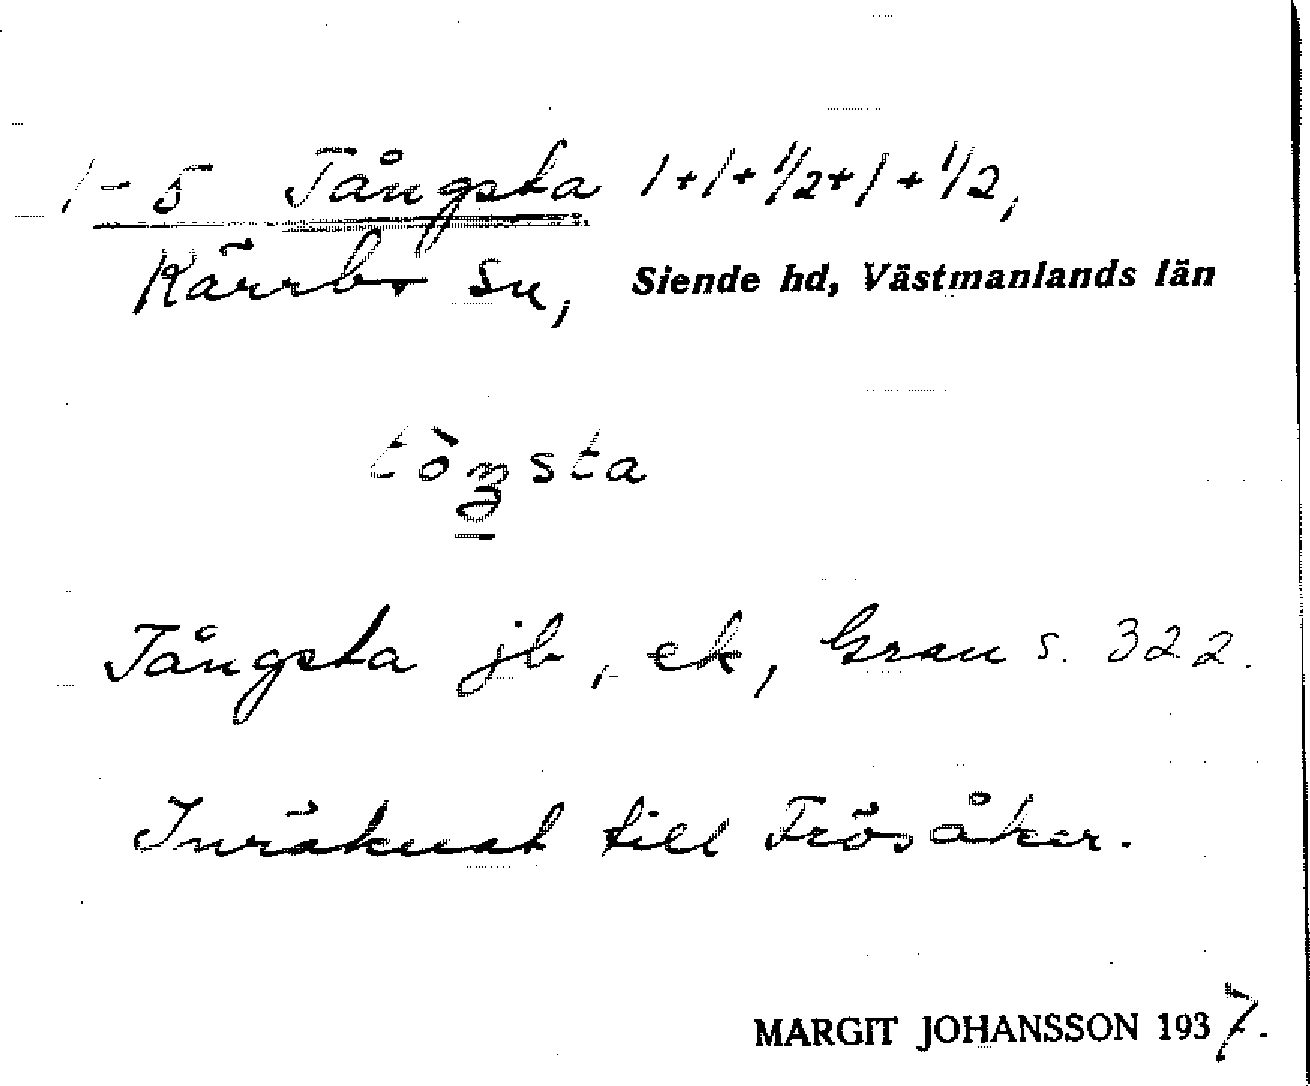 1-5 Tångsta 1+1+1/2+1+1/2,
Kärrbo sn, Siende hd, Västmanlands län
tòŋsta
Tångsta jb, ek, Grau s. 322.
Inräknat till Frösåker.
MARGIT JOHANSSON 1937.